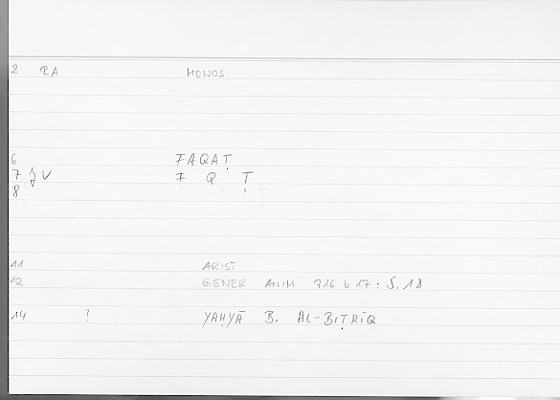 2 RA MONOS
6 FAQAṬ
7 J V F Q Ṭ
8
11 ARIST
12 GENER ANIM 716 b 17 : 5, 18
14 ? YAḤYĀ B. AL-BIṬRĪQ